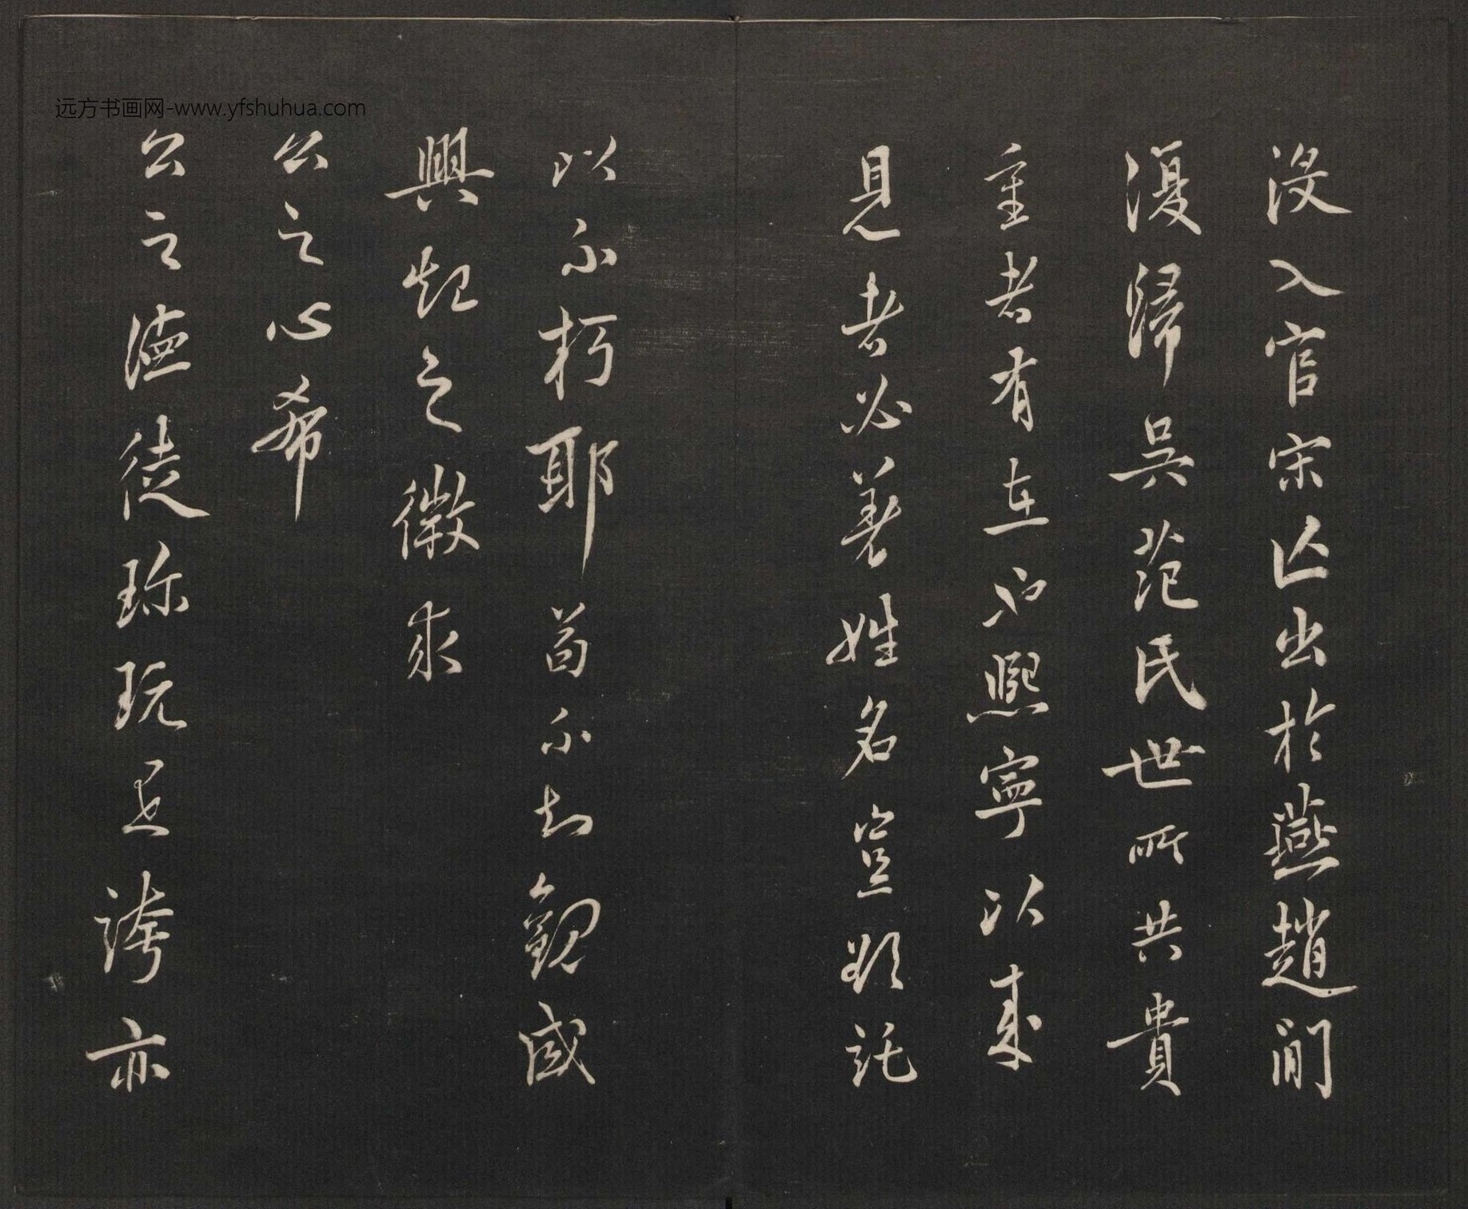 远方书画网-www.yfshuhua.com
没入官宋亡出於燕趙間
復歸吳范氏世所共貴
重者有在也熙寧以來
見者必著姓名豈欲託
以不朽耶苟不知觀感
興起之徵求
公之心希
公之德徒珍玩是誇亦